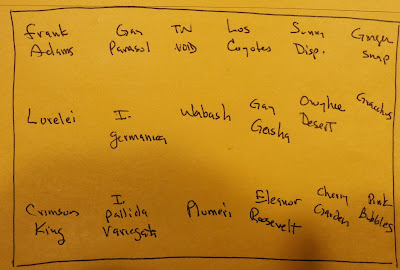 Frank Gay TN Los Sunny Ginger
Adams Parasol VOID Coyotes Disp. Snap
Lorelei I. Wabash Gay Owyhee Gracchus
germanica Geisha Desert
Crimson I. Plumeri Eleanor Cherry Pink
King Pallida Roosevelt Garden Bubbles
Variegata